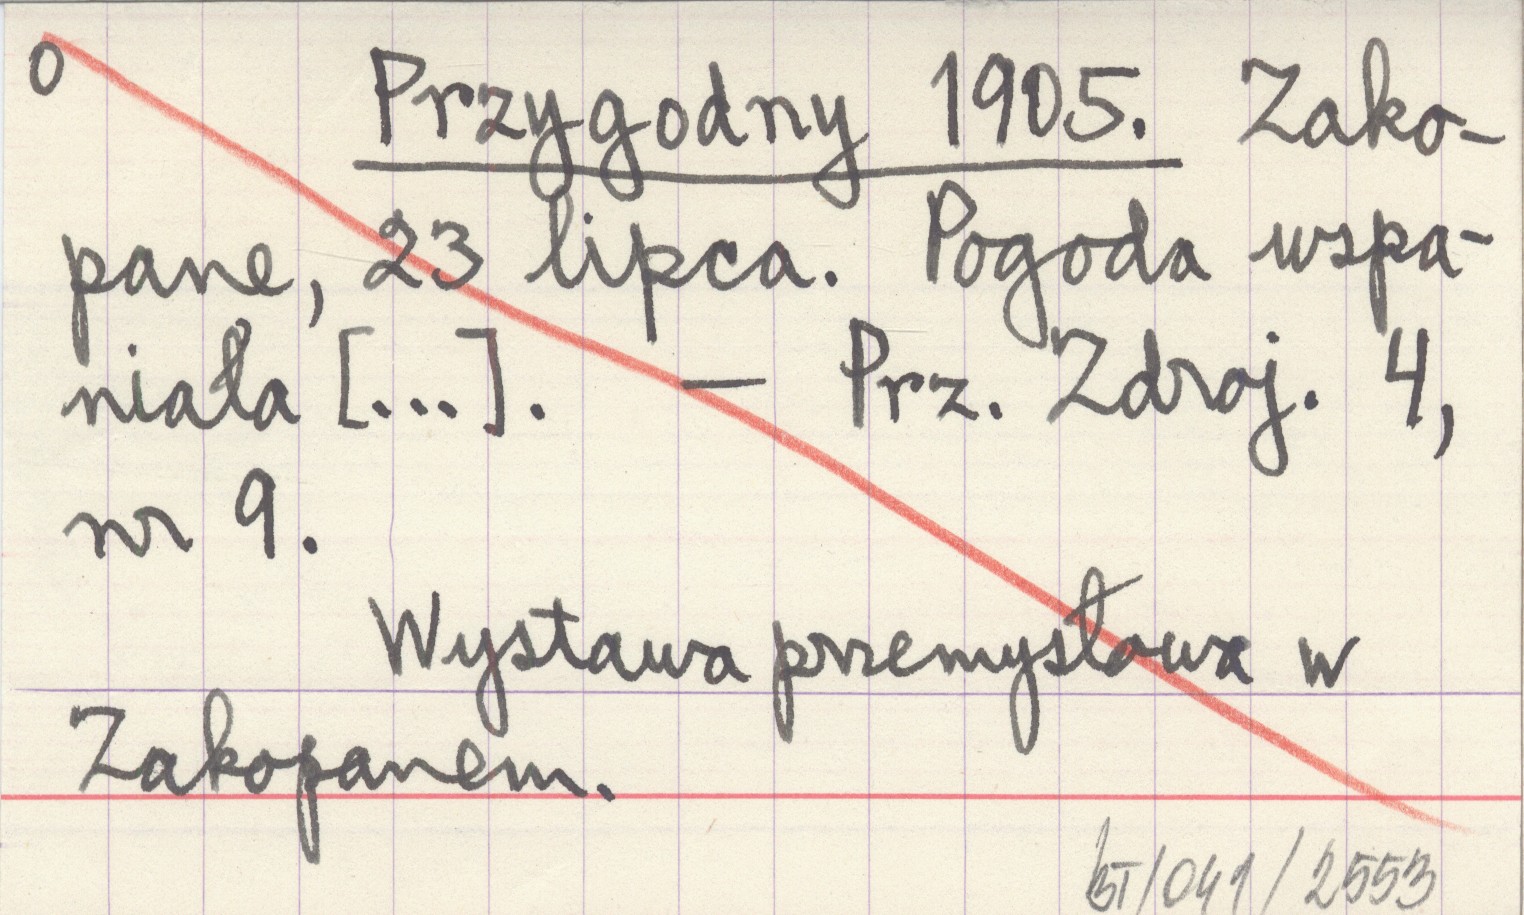 0 Przygodny 1905. Zako-
pane, 23 lipca. Pogoda wspa-
niała [...]. — Prz. Zdroj. 4,
nr 9.
Wystawa przemysłowa w
Zakopanem.
BT/041/2553